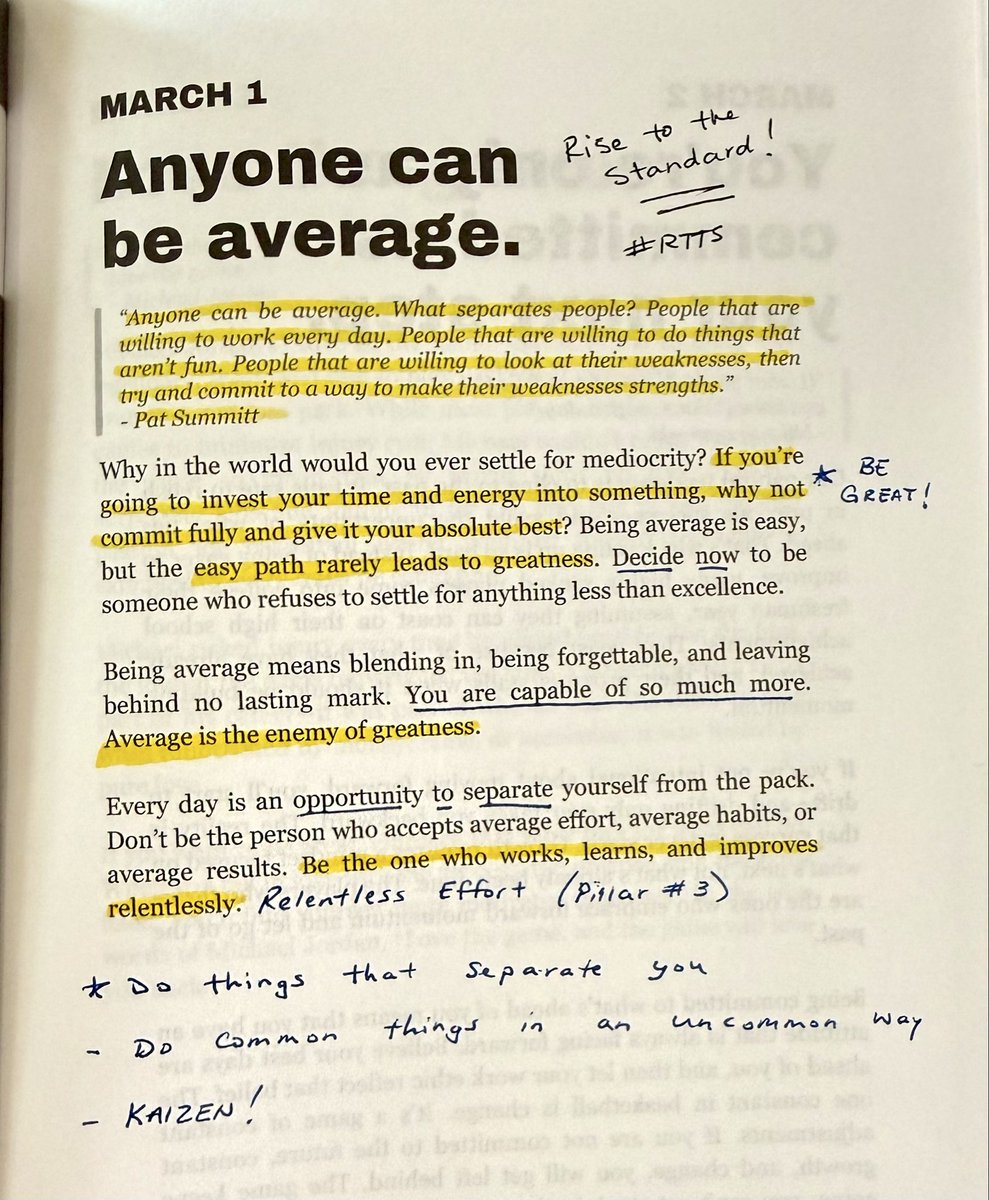 MARCH 1
Anyone can
be average.
Rise to the
Standard!
#RTTS
"Anyone can be average. What separates people? People that are
willing to work every day. People that are willing to do things that
aren't fun. People that are willing to look at their weaknesses, then
try and commit to a way to make their weaknesses strengths."
- Pat Summitt
Why in the world would you ever settle for mediocrity? If you're
going to invest your time and energy into something, why not
commit fully and give it your absolute best? Being average is easy,
but the easy path rarely leads to greatness. Decide now to be
someone who refuses to settle for anything less than excellence.
* BE
GREAT!
Being average means blending in, being forgettable, and leaving
behind no lasting mark. You are capable of so much more.
Average is the enemy of greatness.
Every day is an opportunity to separate yourself from the pack.
Don't be the person who accepts average effort, average habits, or
average results. Be the one who works, learns, and improves
relentlessly. Relentless Effort (Pillar #3)
* Do things that separate you
- Do common things in an uncommon way
- KAIZEN!